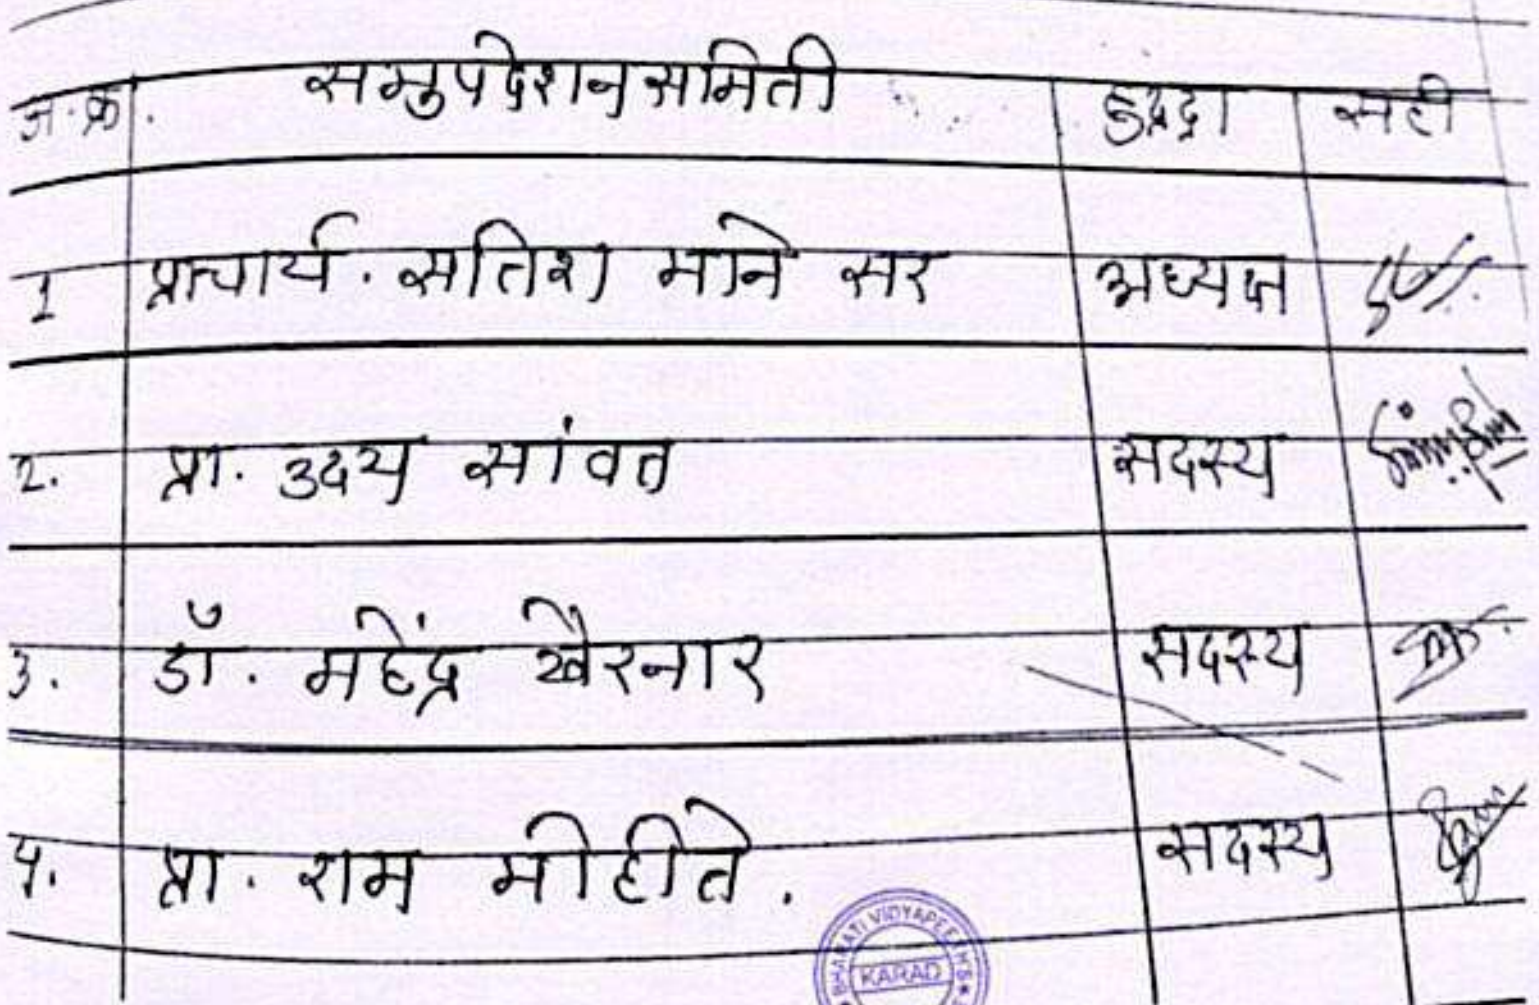 अ.क्र. समुपदेशन समिती हुद्दा सही
1 प्राचार्य. सतिश माने सर अध्यक्ष
2. प्रा. उदय सांवत सदस्य
3. डॉ. महेंद्र खैरनार सदस्य
4. प्रा. राम मोहीते. सदस्य
BHARATI VIDYAPEETH'S
KARAD